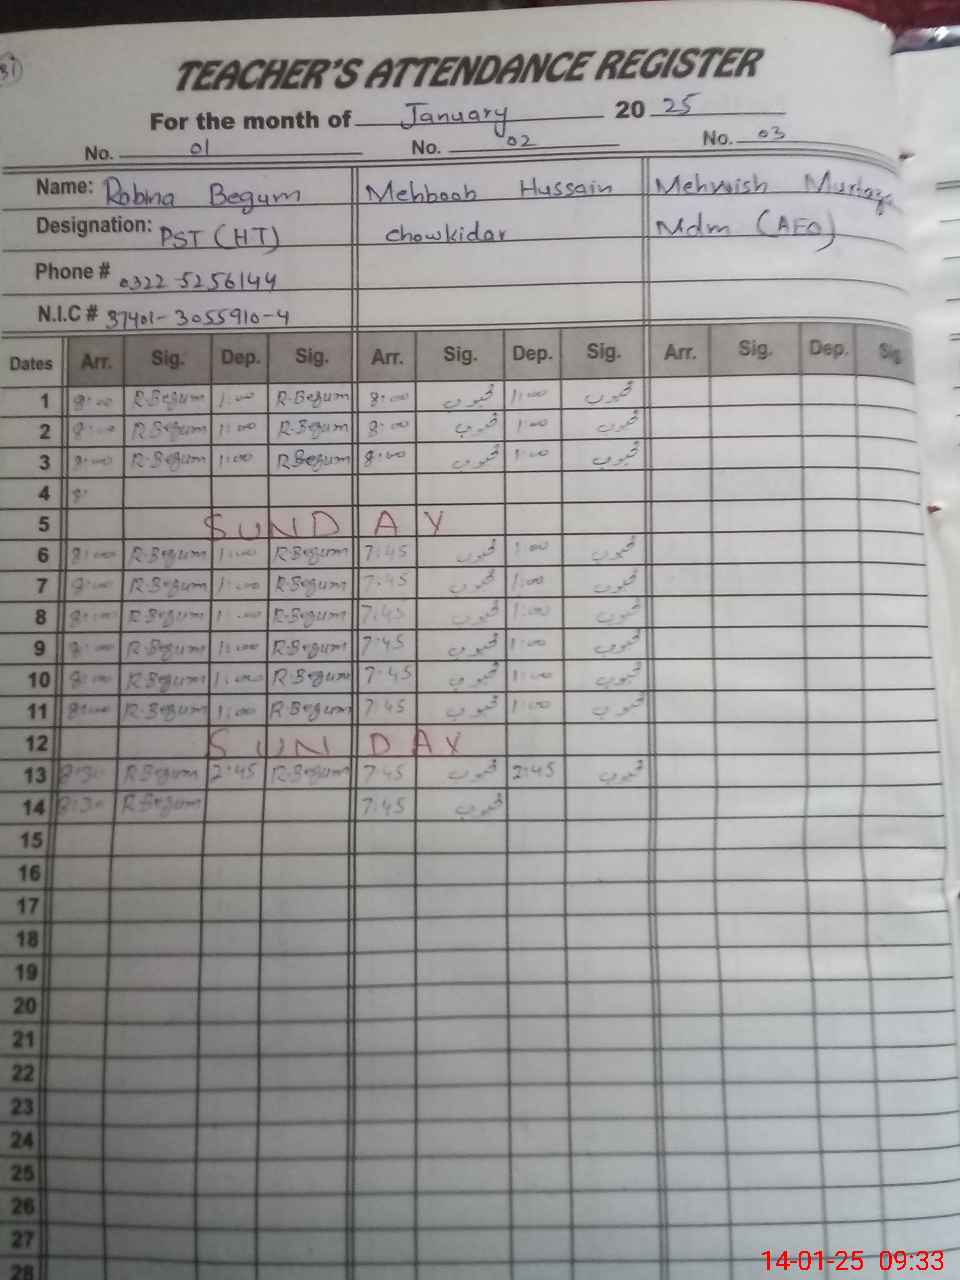 31
TEACHER'S ATTENDANCE REGISTER
For the month of January 2025
No. 01 No. 02 No. 03
Name: Robina Begum Mehboob Hussain Mehwish Murtaza
Designation: PST (HT) Chowkidar Mdm (AEO)
Phone # 0322-5256144
N.I.C # 37401-3055910-4
Dates Arr. Sig. Dep. Sig. Arr. Sig. Dep. Sig. Arr. Sig. Dep. Sig
1 8:00 R.Begum 1:00 R.Begum 8:00 محبوب 1:00 محبوب
2 8:00 R.Begum 1:00 R.Begum 8:00 محبوب 1:00 محبوب
3 8:00 R.Begum 1:00 R.Begum 8:00 محبوب 1:00 محبوب
4 8:
5 SUNDAY
6 8:00 R.Begum 1:00 R.Begum 7:45 محبوب 1:00 محبوب
7 8:00 R.Begum 1:00 R.Begum 7:45 محبوب 1:00 محبوب
8 8:00 R.Begum 1:00 R.Begum 7:45 محبوب 1:00 محبوب
9 8:00 R.Begum 1:00 R.Begum 7:45 محبوب 1:00 محبوب
10 8:00 R.Begum 1:00 R.Begum 7:45 محبوب 1:00 محبوب
11 8:00 R.Begum 1:00 R.Begum 7:45 محبوب 1:00 محبوب
12 SUNDAY
13 8:30 R.Begum 2:45 R.Begum 7:45 محبوب 2:45 محبوب
14 8:30 R.Begum 7:45 محبوب
15
16
17
18
19
20
21
22
23
24
25
26
27
28
14-01-25 09:33